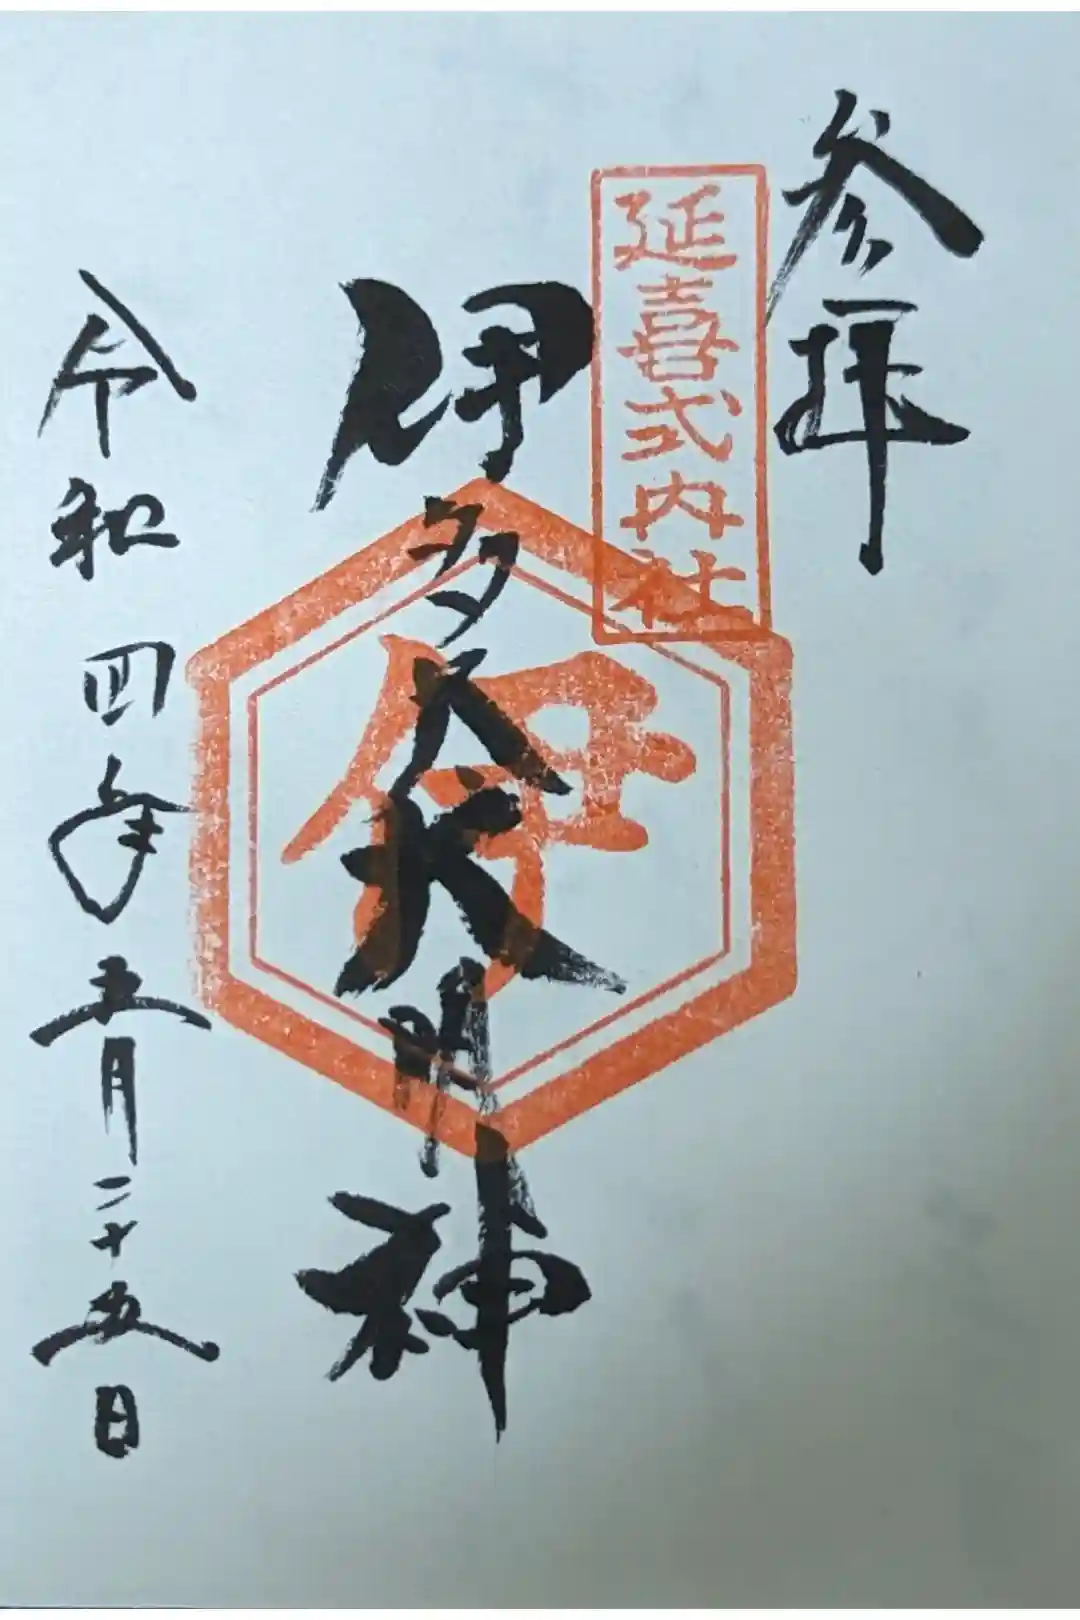 参拝
延喜式内社
伊多大明神
伊
令和四年五月二十五日